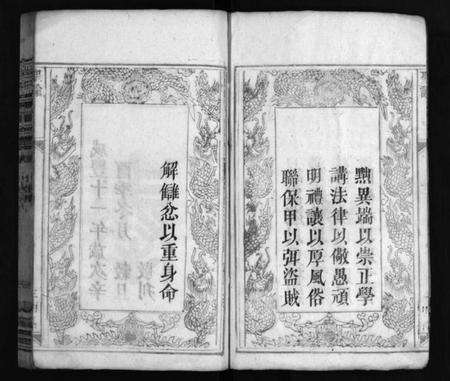 黜異端以崇正學
講法律以儆愚頑
明禮讓以厚風俗
聯保甲以弭盜賊
解讎忿以重身命